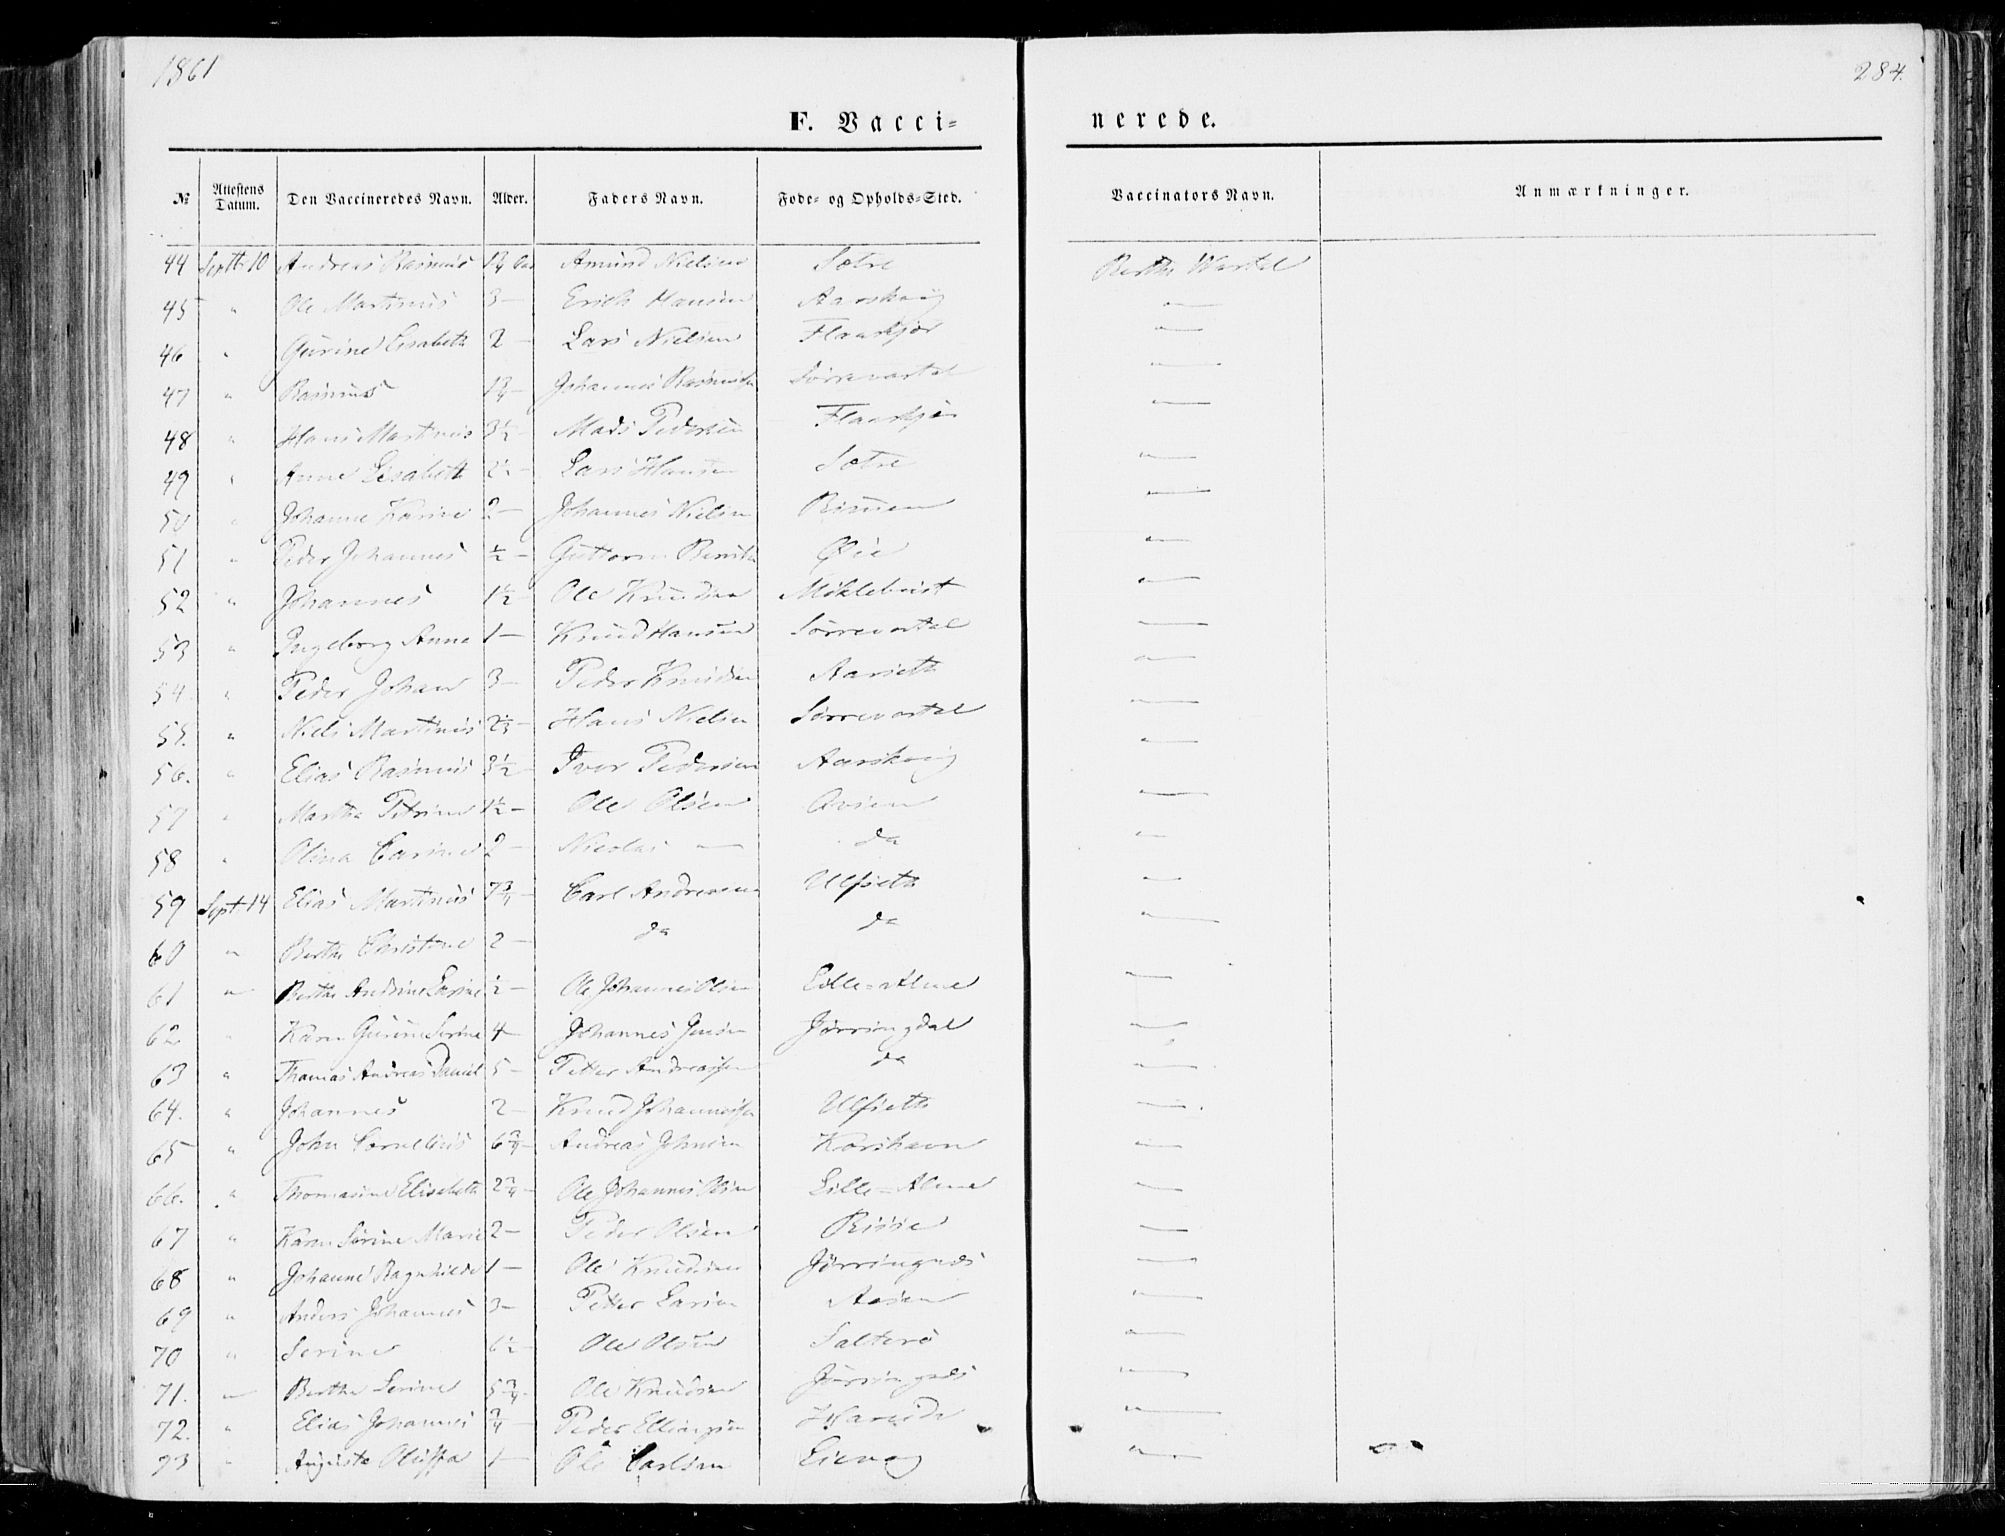 1861
284.
F. Vacci-
nerede.
№ Attestens Datum. Den Vaccineredes Navn. Alder. Faders Navn. Føde- og Opholds-Sted. Vaccinators Navn. Anmærkninger.
44 Septb. 10 Andreas Rasmus 1¾ Amund Nielsen Sætre Berthe Wartal
45 " Ole Martinus 3 — Erich Hansen Aarskoug —"—
46 " Gurine Elisabeth 2 — Lars Nielsen Flaaskjær —"—
47 " Rasmus 1¾ — Johannes Rasmussen Sørrevartal —"—
48 " Hans Martinus 3½ — Mads Pedersen Flaaskjær —"—
49 " Anne Elisabeth 2½ — Lars Hansen Sætre —"—
50 " Johanne Karine 2 — Johannes Nielsen —"—
51 " Peder Johannes ½ — Guttorm Øie —"—
52 " Johannes 1½ — Ole Knudsen Mÿklebust —"—
53 " Ingeborg Anna 1 — Knud Hansen Sørrevartal —"—
54. " Peder Johan 3 — Peder Knudsen Aarseth —"—
55. " Niels Martinus Hans Nielsen Sørrevartal —"—
56. " Elias Rasmus 3½ — Iver Pedersen Aarskoug —"—
57 " Marthe Petrine 1½ — Ole Olsen —"—
58 " Olina Carine 2 — Nicolai — da —"—
59 Sept. 14 Elias Martinus 7¾ — Carl Andreasen Ulfseth —"—
60 " Berthe Christine 2 — da da —"—
61 " Berthe Andrine Larine ½ — Ole Johannes Olsen Lille-Alme —"—
62 " Karen Gurine Serine 4 — Johannes Jensen Jørringdal —"—
63 " Thomas Andreas Daniel 5 — Petter Andreassen da —"—
64. " Johannes 2 — Knud Johannessen Ulfseth —"—
65 " John Cornelius 6¾ — Andreas Johnsen Korshavn —"—
66. " Thomasine Elisabeth 2¾ — Ole Johannes Olsen Lille-Alme —"—
67 " Karen Serine Marie 2 — Peder Olsen Risøe —"—
68 " Johanne Ragnhilde 1 — Ole Knudsen Jørringnæs —"—
69 " Anders Johannes 3 — Petter Larsen Aasen —"—
70 " Serine 6½ — Ole Olsen Salterø —"—
71. " Berthe Serine 5¾ — Ole Knudsen Jørringnæs —"—
72. " Elias Johannes ¾ Peder Ellingsen Hareide —"—
73 " Auguste Oluffa 1 — Ole Carlsen Lievag —"—